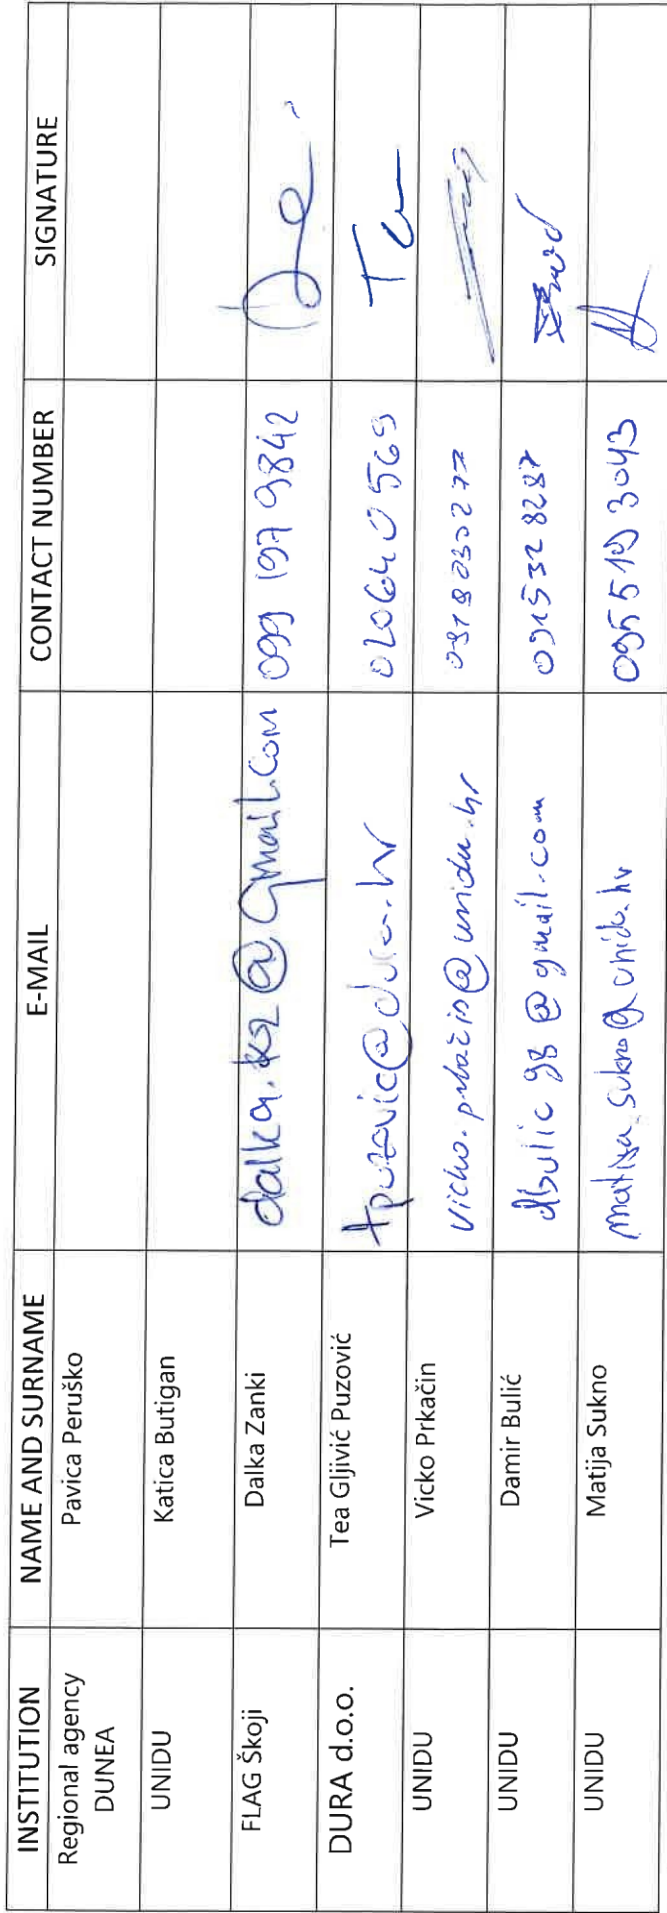 INSTITUTION NAME AND SURNAME E-MAIL CONTACT NUMBER SIGNATURE
Regional agency DUNEA Pavica Peruško
UNIDU Katica Butigan
FLAG Škoji Dalka Zanki dalka.kz@gmail.com 099 197 9842
DURA d.o.o. Tea Gljivić Puzović tpuzovic@dura.hr 020640569
UNIDU Vicko Prkačin vicko.prkacin@unidu.hr
UNIDU Damir Bulić dbulic98@gmail.com 0915328287
UNIDU Matija Sukno matija.sukno@unidu.hr